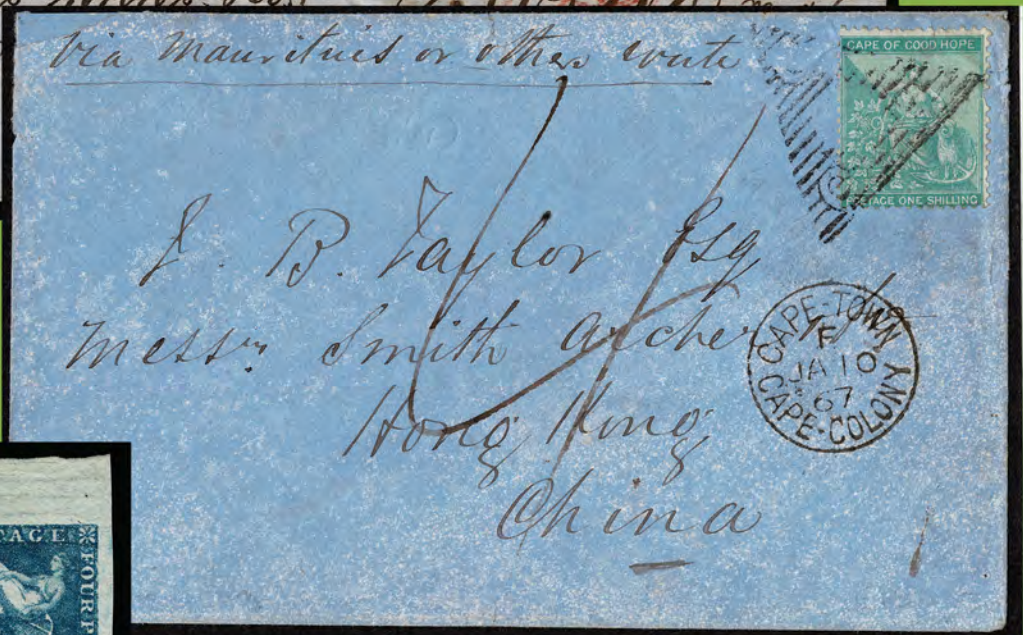 Via Mauritius or other route
CAPE OF GOOD HOPE
POSTAGE ONE SHILLING
J. B. Taylor Esq
Messrs Smith Archer
Hong Kong
China
CAPE-TOWN
E
JA 10
67
CAPE-COLONY
TAGE
FOUR P